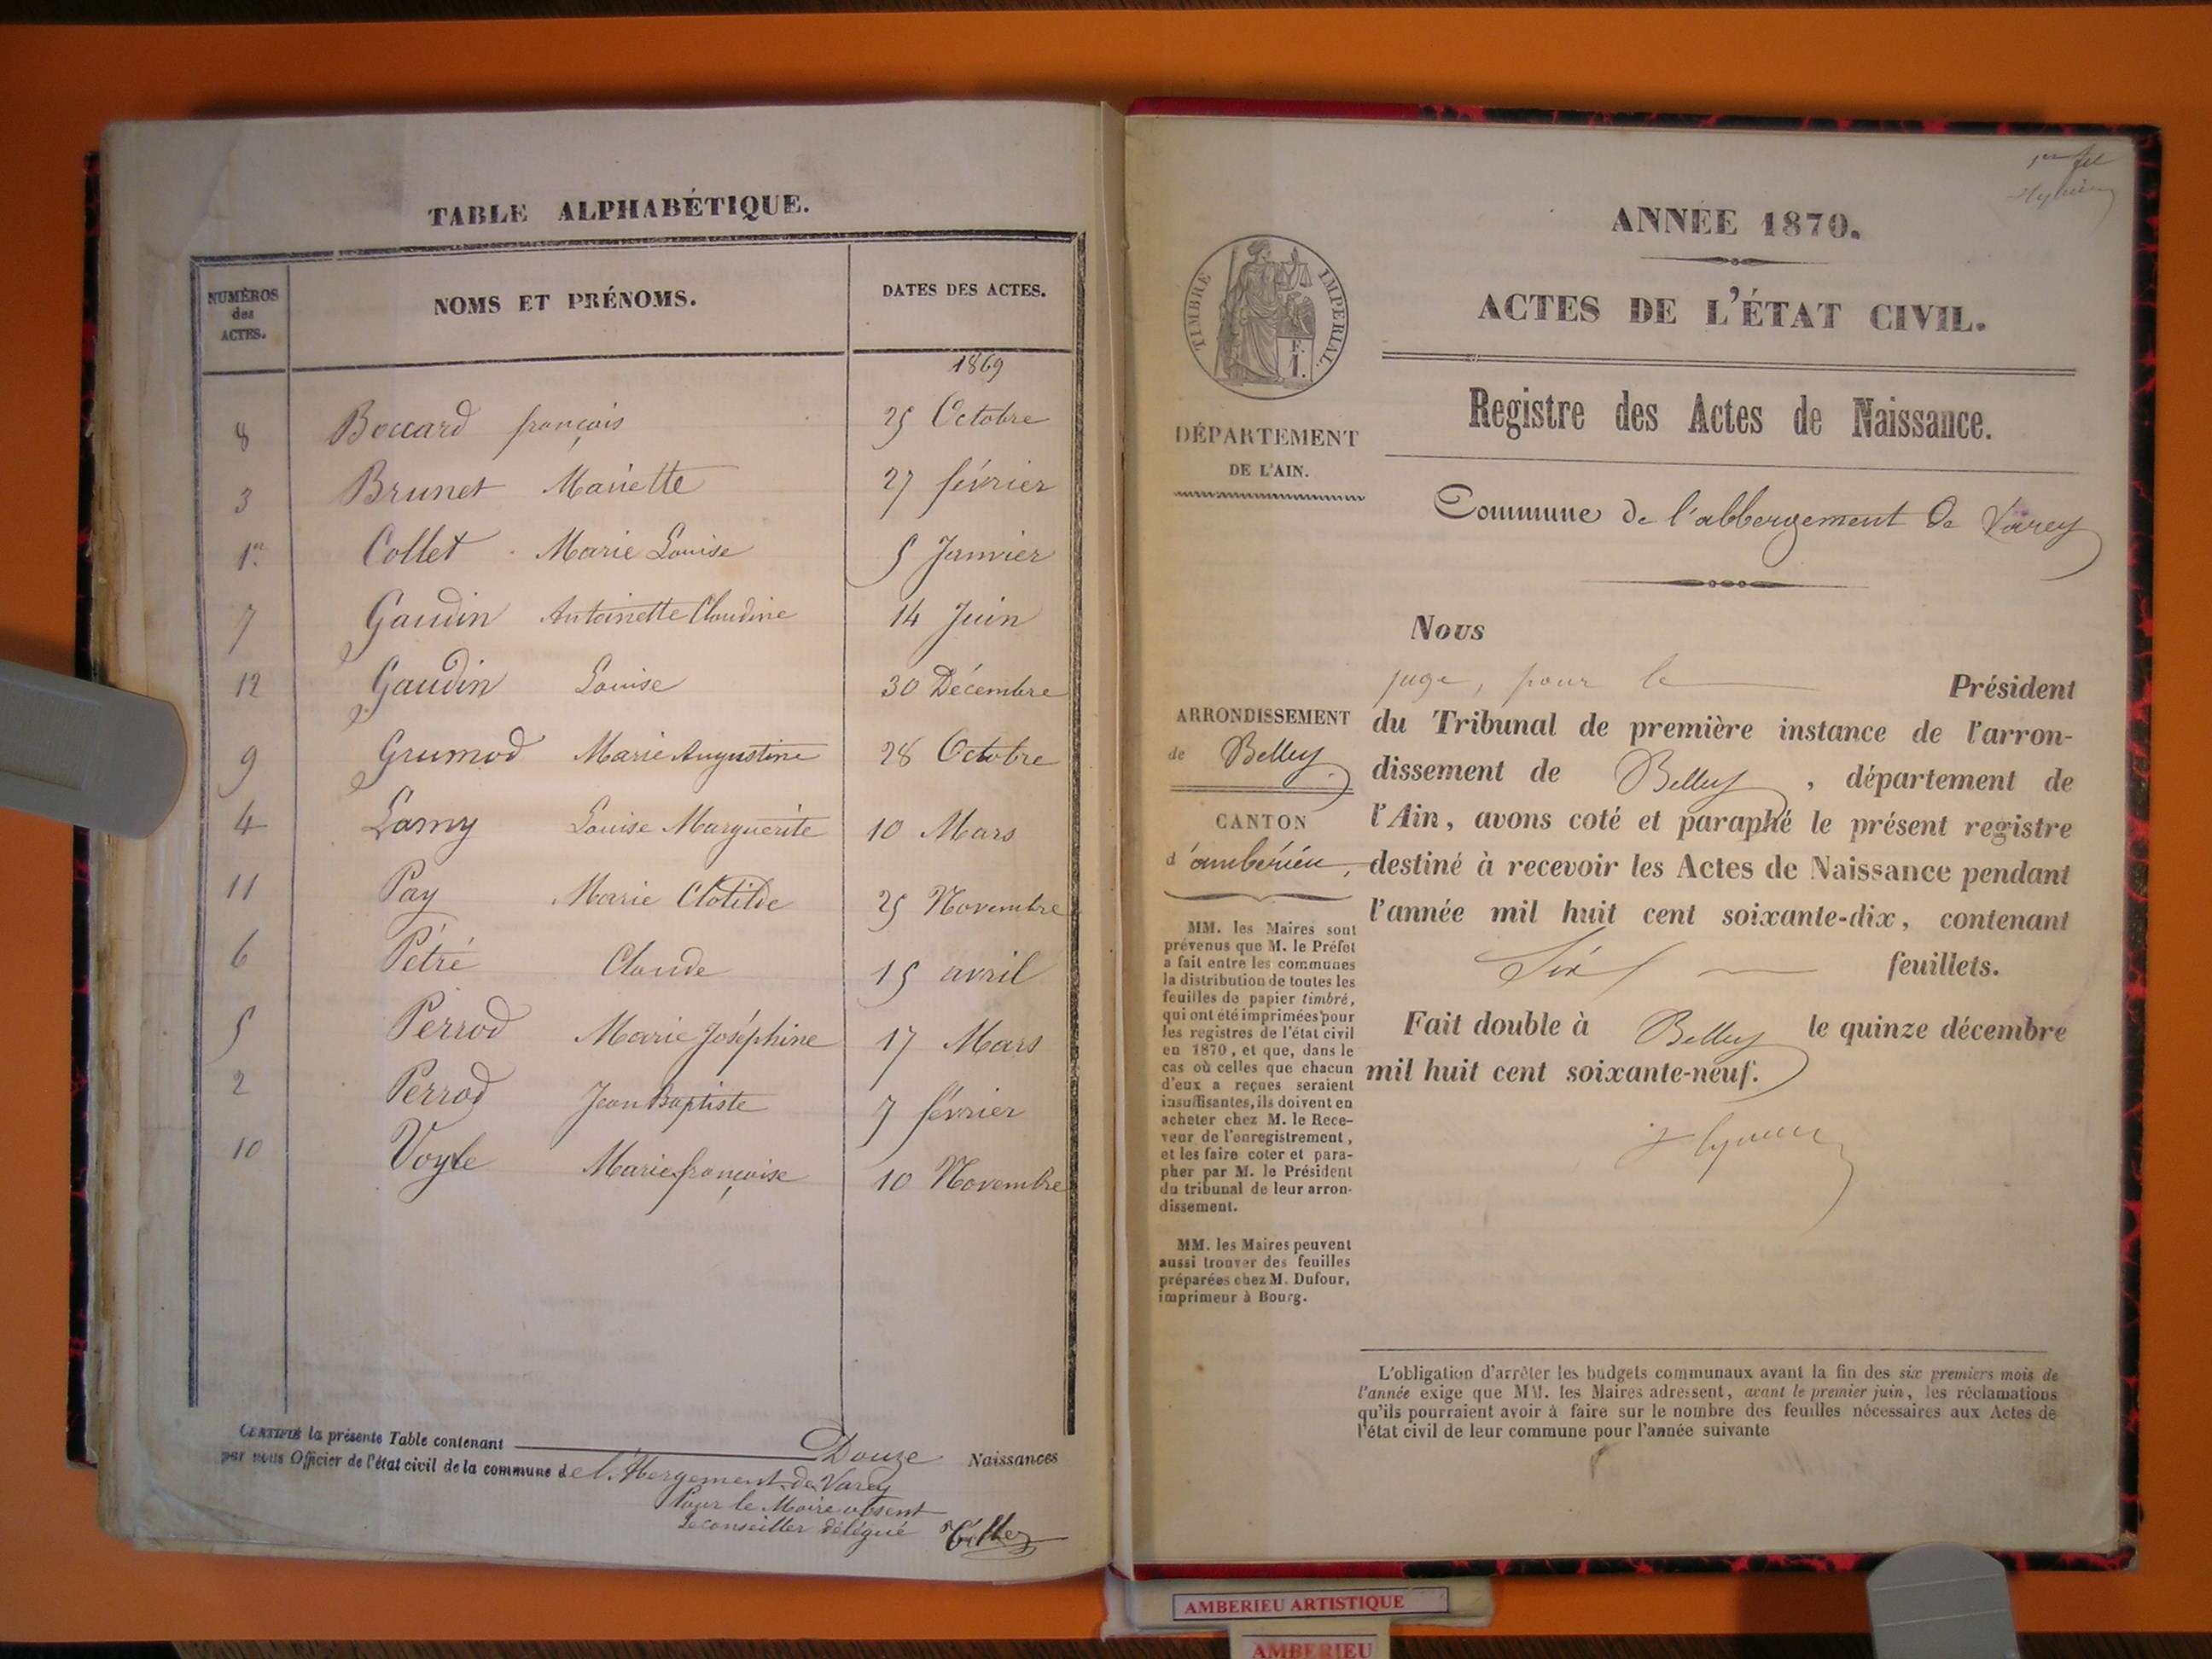 TABLE ALPHABÉTIQUE.
NUMÉROS des ACTES. NOMS ET PRÉNOMS. DATES DES ACTES.
1869
8 Boccard françois 25 Octobre
3 Brunet Mariette 27 février
1er Collet Marie Louise 5 Janvier
7 Gaudin Antoinette Claudine 14 Juin
12 Gaudin Louise 30 Décembre
9 Grumod Marie Augustine 28 Octobre
4 Lamy Louise Marguerite 10 Mars
11 Pay Marie Clotilde 25 Novembre
6 Pétré Claude 15 avril
5 Perrod Marie Joséphine 17 Mars
2 Perrod Jean Baptiste 7 février
10 Voyle Marie françoise 10 Novembre
CERTIFIÉ la présente Table contenant Douze Naissances
par nous Officier de l'état civil de la commune de l'Abergement de Varey
Pour le Maire absent
Le conseiller délégué
ANNÉE 1870.
ACTES DE L'ÉTAT CIVIL.
Registre des Actes de Naissance.
Commune de l'abbergement de Varey
TIMBRE IMPÉRIAL.
F.
1.
DÉPARTEMENT
DE L'AIN.
ARRONDISSEMENT
de Belley
CANTON
d'ambérieu,
MM. les Maires sont
prévenus que M. le Préfet
a fait entre les communes
la distribution de toutes les
feuilles de papier timbré,
qui ont été imprimées pour
les registres de l'état civil
en 1870, et que, dans le
cas où celles que chacun
d'eux a reçues seraient
insuffisantes, ils doivent en
acheter chez M. le Rece-
veur de l'enregistrement,
et les faire coter et para-
pher par M. le Président
du tribunal de leur arron-
dissement.
MM. les Maires peuvent
aussi trouver des feuilles
préparées chez M. Dufour,
imprimeur à Bourg.
Nous
juge, pour le Président
du Tribunal de première instance de l'arron-
dissement de Belley, département de
l'Ain, avons coté et paraphé le présent registre
destiné à recevoir les Actes de Naissance pendant
l'année mil huit cent soixante-dix, contenant
Six feuillets.
Fait double à Belley le quinze décembre
mil huit cent soixante-neuf.
L'obligation d'arrêter les budgets communaux avant la fin des six premiers mois de
l'année exige que MM. les Maires adressent, avant le premier juin, les réclamations
qu'ils pourraient avoir à faire sur le nombre des feuilles nécessaires aux Actes de
l'état civil de leur commune pour l'année suivante
AMBERIEU ARTISTIQUE
AMBERIEU